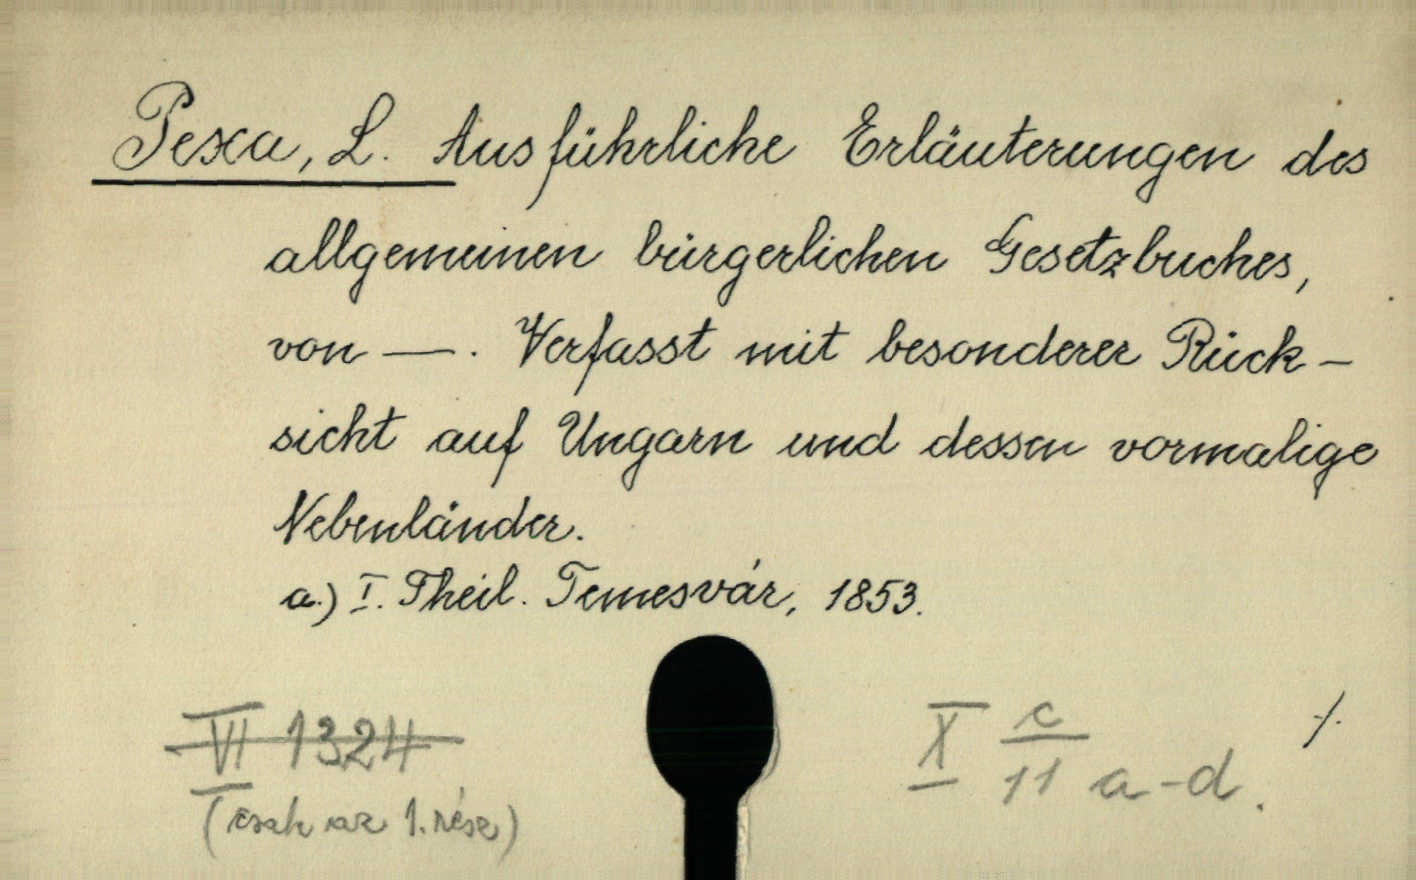 Pexa, L. Ausführliche Erläuterungen des
allgemeinen bürgerlichen Gesetzbuches,
von —. Verfasst mit besonderer Rück-
sicht auf Ungarn und dessen vormalige
Nebenländer.
a.) I. Theil. Temesvár, 1853.
VI 1324
(csak az 1. rész)
X c/11 a-d.
·/·